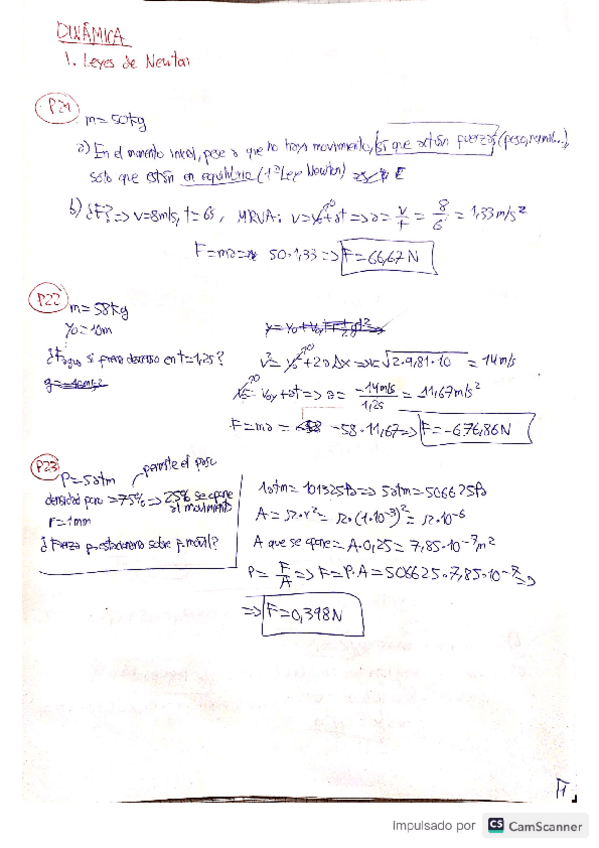 DINÁMICA
1. Leyes de Newton
P21
m=50kg
a) En el momento inicial, pese a que no haya movimiento, sí que actúan fuerzas (peso, normal...),
solo que están en equilibrio (1ª Ley Newton)
b) ¿F? => v=8m/s, t=6s, MRVA: v=v₀+at => a= v/t = 8/6 = 1,33m/s²
F=ma=> 50·1,33 => F=66,67N
P22
m=58kg
y₀=10m
¿Fagua si frena descenso en t=1,2s?
v²=v₀²+2aΔx => v=√2·9,81·10 = 14m/s
v₀y+at => a= -14m/s / 1,2s = -11,67m/s²
F=ma = -58·11,67 => F=-676,86N
P23
P=5atm
permite el paso
densidad poro =75% => 25% se opone al movimiento
r=1mm
¿Fuerza f.estacionaria sobre f.móvil?
1atm=101325Pa => 5atm=506625Pa
A=π·r²=π·(1·10⁻³)²=π·10⁻⁶
A que se opone=A·0,25=7,85·10⁻⁷m²
P= F/A => F=P·A=506625·7,85·10⁻⁷ =>
=> F=0,398N
Impulsado por CS CamScanner